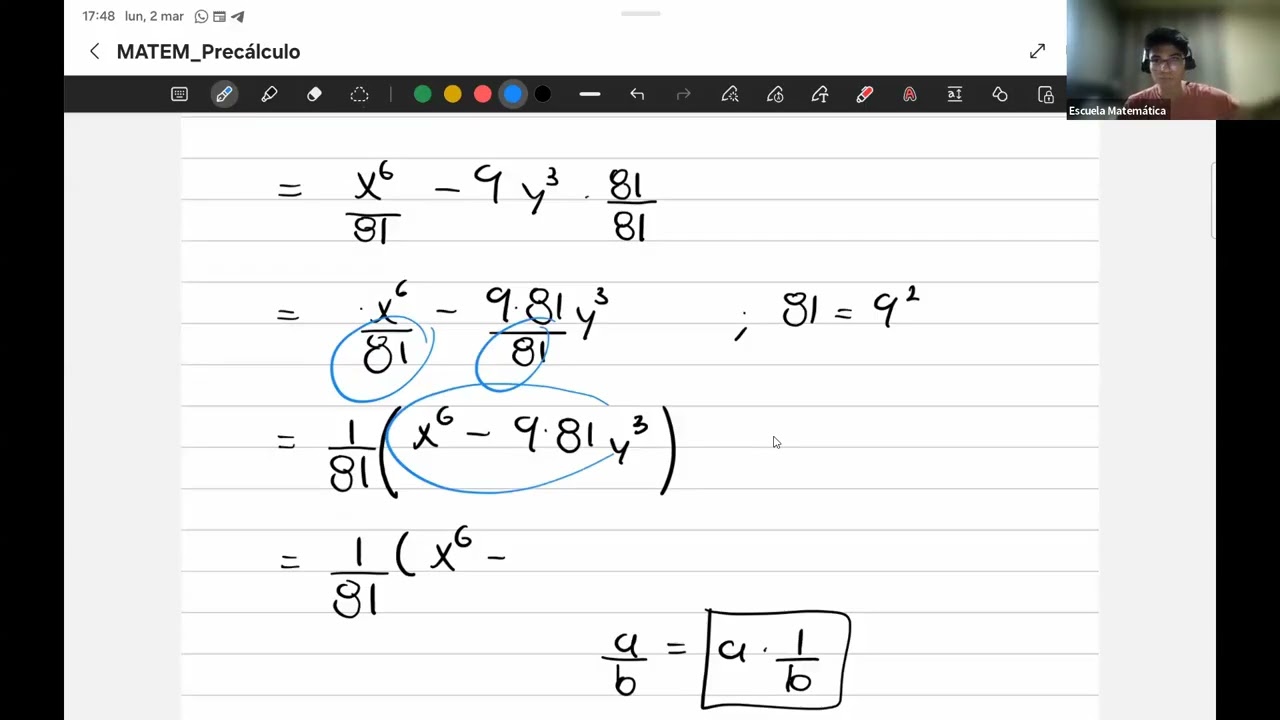 17:48 lun, 2 mar
MATEM_Precálculo
Escuela Matemática
= x⁶/81 - 9 y³ · 81/81
= x⁶/81 - 9·81/81 y³ ; 81 = 9²
= 1/81 (x⁶ - 9·81 y³)
= 1/81 ( x⁶ -
a/b = a · 1/b